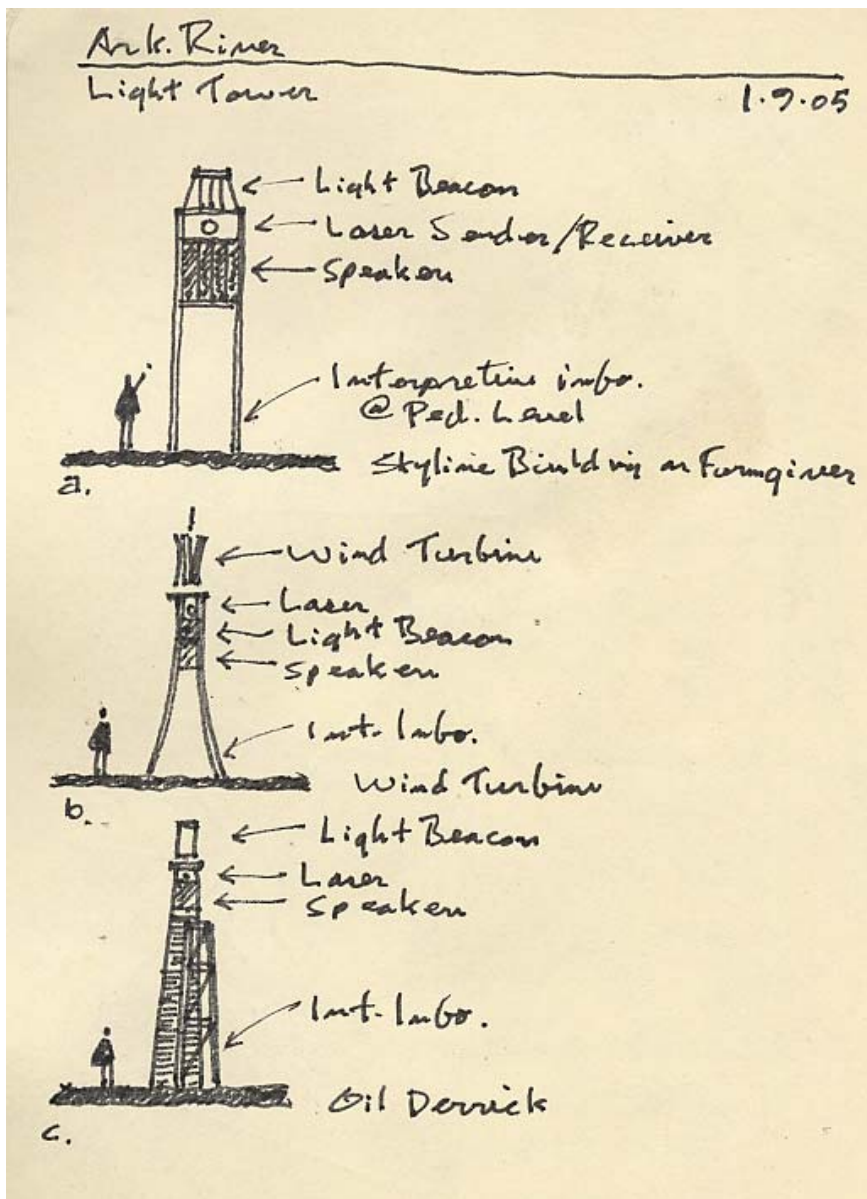 Ark. River
Light Tower
1.9.05
Light Beacon
Laser Sender/Receiver
Speaker
Interpretive info.
@ Ped. Level
Skyline Building as Formgiver
a.
Wind Turbine
Laser
Light Beacon
Speaker
Int. Info.
Wind Turbine
b.
Light Beacon
Laser
Speaker
Int. Info.
Oil Derrick
c.